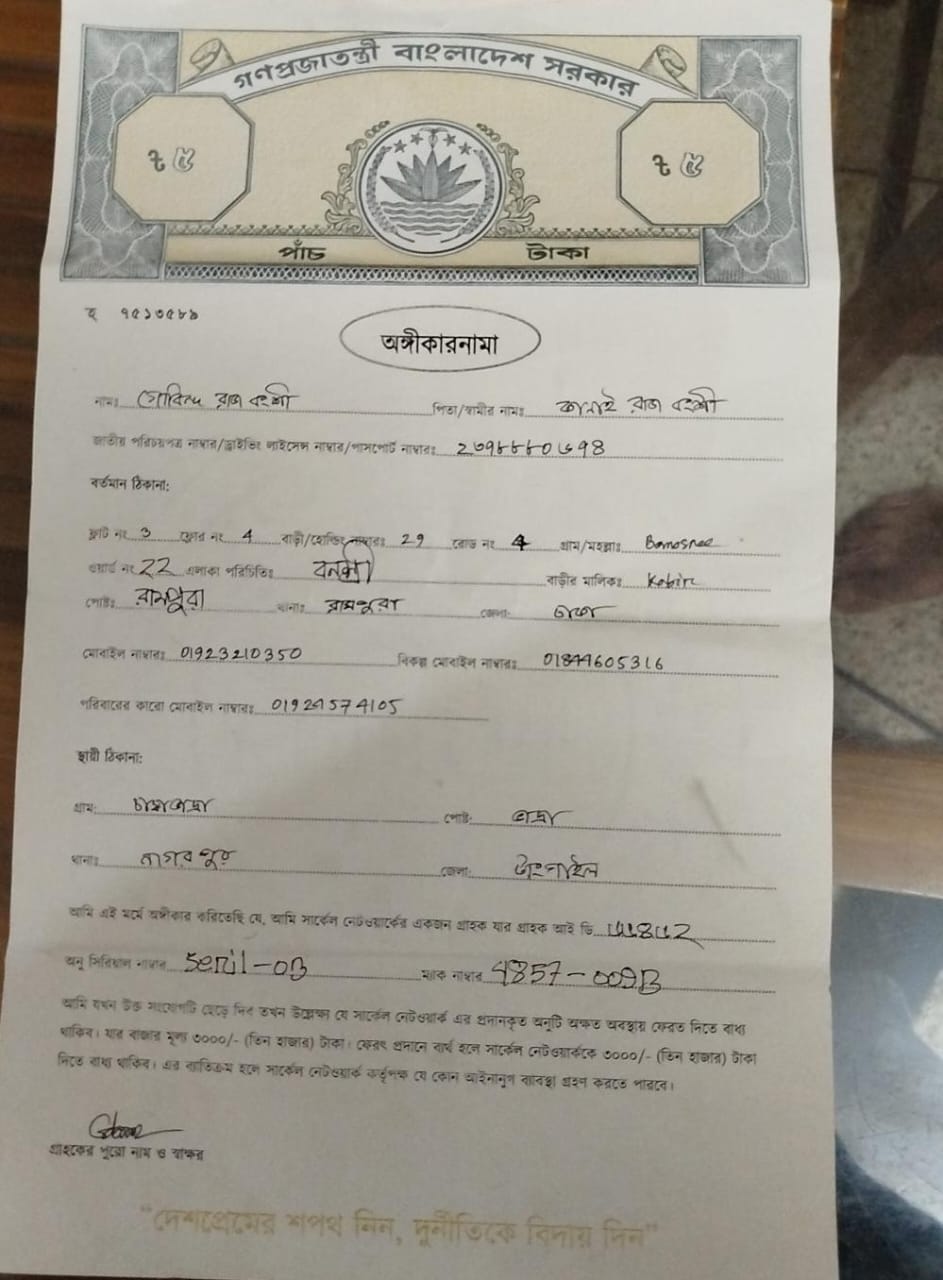 গণপ্রজাতন্ত্রী বাংলাদেশ সরকার
৳ ৫ ৳ ৫
পাঁচ টাকা
হ ৭৫১৩৫৮৯
অঙ্গীকারনামা
নামঃ গোবিন্দ রাজ বংশী পিতা/স্বামীর নামঃ কানাই রাজ বংশী
জাতীয় পরিচয়পত্র নাম্বার/ড্রাইভিং লাইসেন্স নাম্বার/পাসপোর্ট নাম্বারঃ
বর্তমান ঠিকানা:
ফ্লাট নং 3 ফ্লোর নং 4 বাড়ী/হোল্ডিং নাম্বারঃ 29 রোড নং 4 গ্রাম/মহল্লাঃ Banasree
ওয়ার্ড নং 22 এলাকা পরিচিতিঃ বনশ্রী বাড়ীর মালিকঃ Kabir
পোষ্টঃ রামপুরা থানাঃ রামপুরা জেলা: ঢাকা
মোবাইল নাম্বারঃ 01923210350 বিকল্প মোবাইল নাম্বারঃ 01844605316
পরিবারের কারো মোবাইল নাম্বারঃ
স্থায়ী ঠিকানা:
গ্রাম: পোষ্ট: ভাদ্রা
থানাঃ নাগরপুর জেলা: টাংগাইল
আমি এই মর্মে অঙ্গীকার করিতেছি যে, আমি সার্কেল নেটওয়ার্কের একজন গ্রাহক যার গ্রাহক আই ডি
অনু সিরিয়াল নাম্বার ম্যাক নাম্বার
আমি যখন উক্ত সংযোগটি ছেড়ে দিব তখন উল্লেক্ষ্য যে সার্কেল নেটওয়ার্ক এর প্রদানকৃত অনুটি অক্ষত অবস্থায় ফেরত দিতে বাধ্য
থাকিব। যার বাজার মূল্য ৩০০০/- (তিন হাজার) টাকা। ফেরৎ প্রদানে ব্যর্থ হলে সার্কেল নেটওয়ার্ককে ৩০০০/- (তিন হাজার) টাকা
দিতে বাধ্য থাকিব। এর ব্যতিক্রম হলে সার্কেল নেটওয়ার্ক কর্তৃপক্ষ যে কোন আইনানুগ ব্যবস্থা গ্রহণ করতে পারবে।
গ্রাহকের পুরো নাম ও স্বাক্ষর
"দেশপ্রেমের শপথ নিন, দুর্নীতিকে বিদায় দিন"